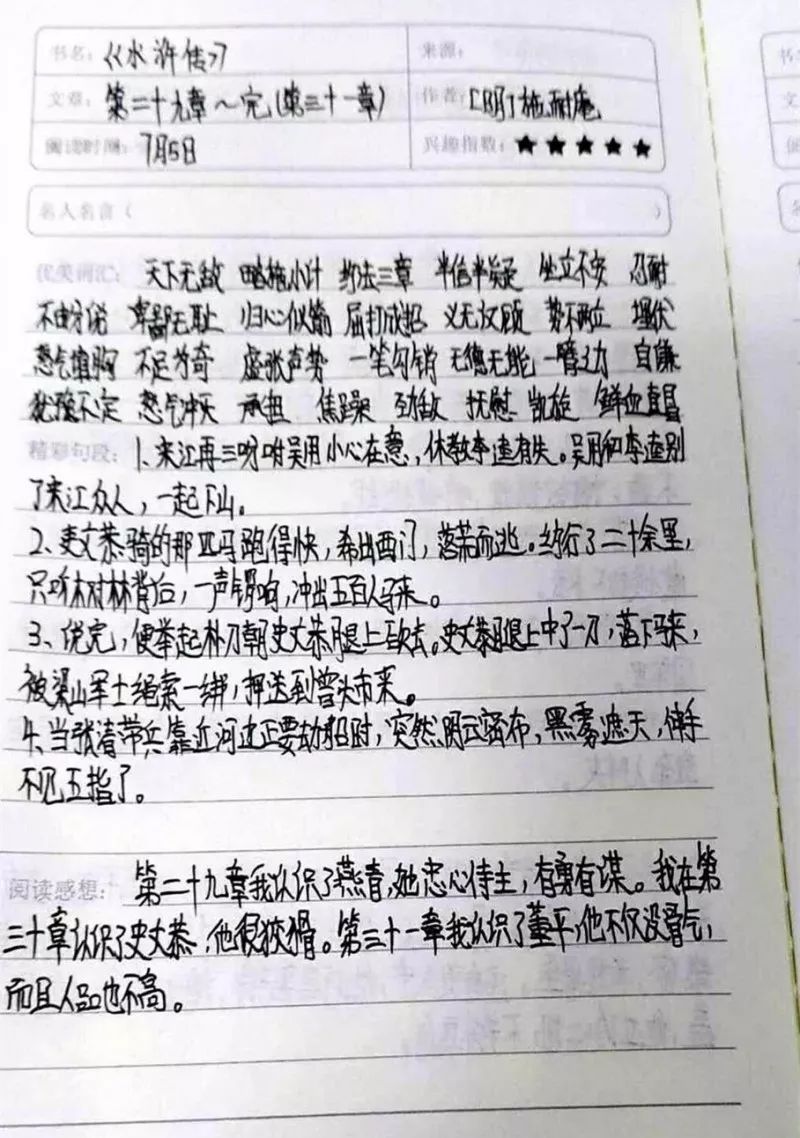 书名：《水浒传》 来源：
文章：第二十九章～完(第三十一章) 作者：[明]施耐庵
阅读时间：7月5日 兴趣指数：★★★★★
名人名言（ ）
优美词汇：天下无敌 略施小计 约法三章 半信半疑 坐立不安 忍耐
不由分说 卑鄙无耻 归心似箭 屈打成招 义无反顾 势不两立 埋伏
怒气填胸 不足为奇 虚张声势 一笔勾销 无德无能 一臂之力 自谦
犹豫不定 怒气冲天 承担 焦躁 劲敌 抚慰 凯旋 鲜血直冒
精彩句段：1、宋江再三叮咛吴用小心在意，休教李逵有失。吴用和李逵别
了宋江众人，一起下山。
2、史文恭骑的那匹马跑得快，杀出西门，落荒而逃。约行了二十余里，
只听树林背后，一声锣响，冲出五百人马来。
3、说完，便举起朴刀朝史文恭腿上砍去。史文恭腿上中了一刀，落下马来，
被梁山军士绳索一绑，押送到曾头市来。
4、当张清带兵靠近河边正要劫船时，突然阴云密布，黑雾遮天，伸手
不见五指了。
阅读感想： 第二十九章我认识了燕青，她忠心侍主，有勇有谋。我在第
三十章认识了史文恭，他很狡猾。第三十一章我认识了董平，他不仅没骨气，
而且人品也不高。